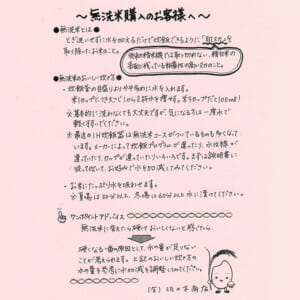 ～無洗米購入のお客様へ～
●無洗米とは●
とぎ洗いせずに水を加えるだけで炊飯できるように「肌ヌカ」を
取り除いたお米のこと。
従来の精米機では取りきれない、精白米の
表面に残っている粘着性の高いヌカのこと。
●無洗米のおいしい炊き方●
・炊飯釜の目盛りよりやや多めに水を入れます。
米1カップにつき大さじ1から2杯水を増やす。米1カップだと200ml
※基本的に洗わなくても大丈夫ですが、気になる方は一度水で
軽くすすいでください。
※最近のIH炊飯器は無洗米コースがついているものも多くなって
います。メーカーによって炊飯プログラムが違ったり、水位線が
違ったり、カップが違ったりいろいろです。まずは説明書通り
炊いてみて、お好みで水を加減してみてください。
・お米にたっぷり水を吸わせます。
※夏場は30分以上、冬場は60分以上水に漬けてください。
ワンポイントアドバイス
無洗米に替えたら硬くておいしくないと感じたら…
硬くなる一番の原因として、水の量が足りない
ことが考えられます。上記のおいしい炊き方の
水の量を参考に水加減を調整してみてください。
(有)